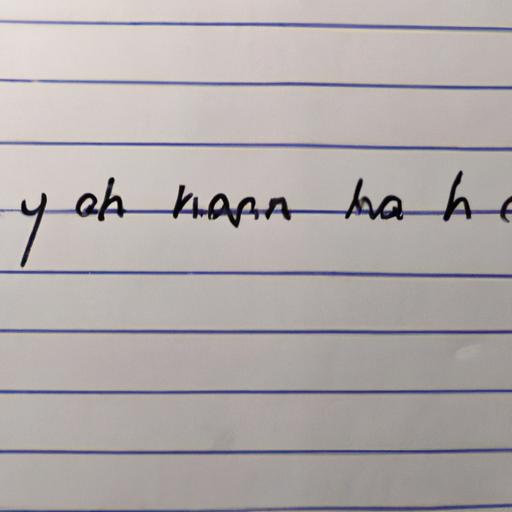 y ah hann ha h